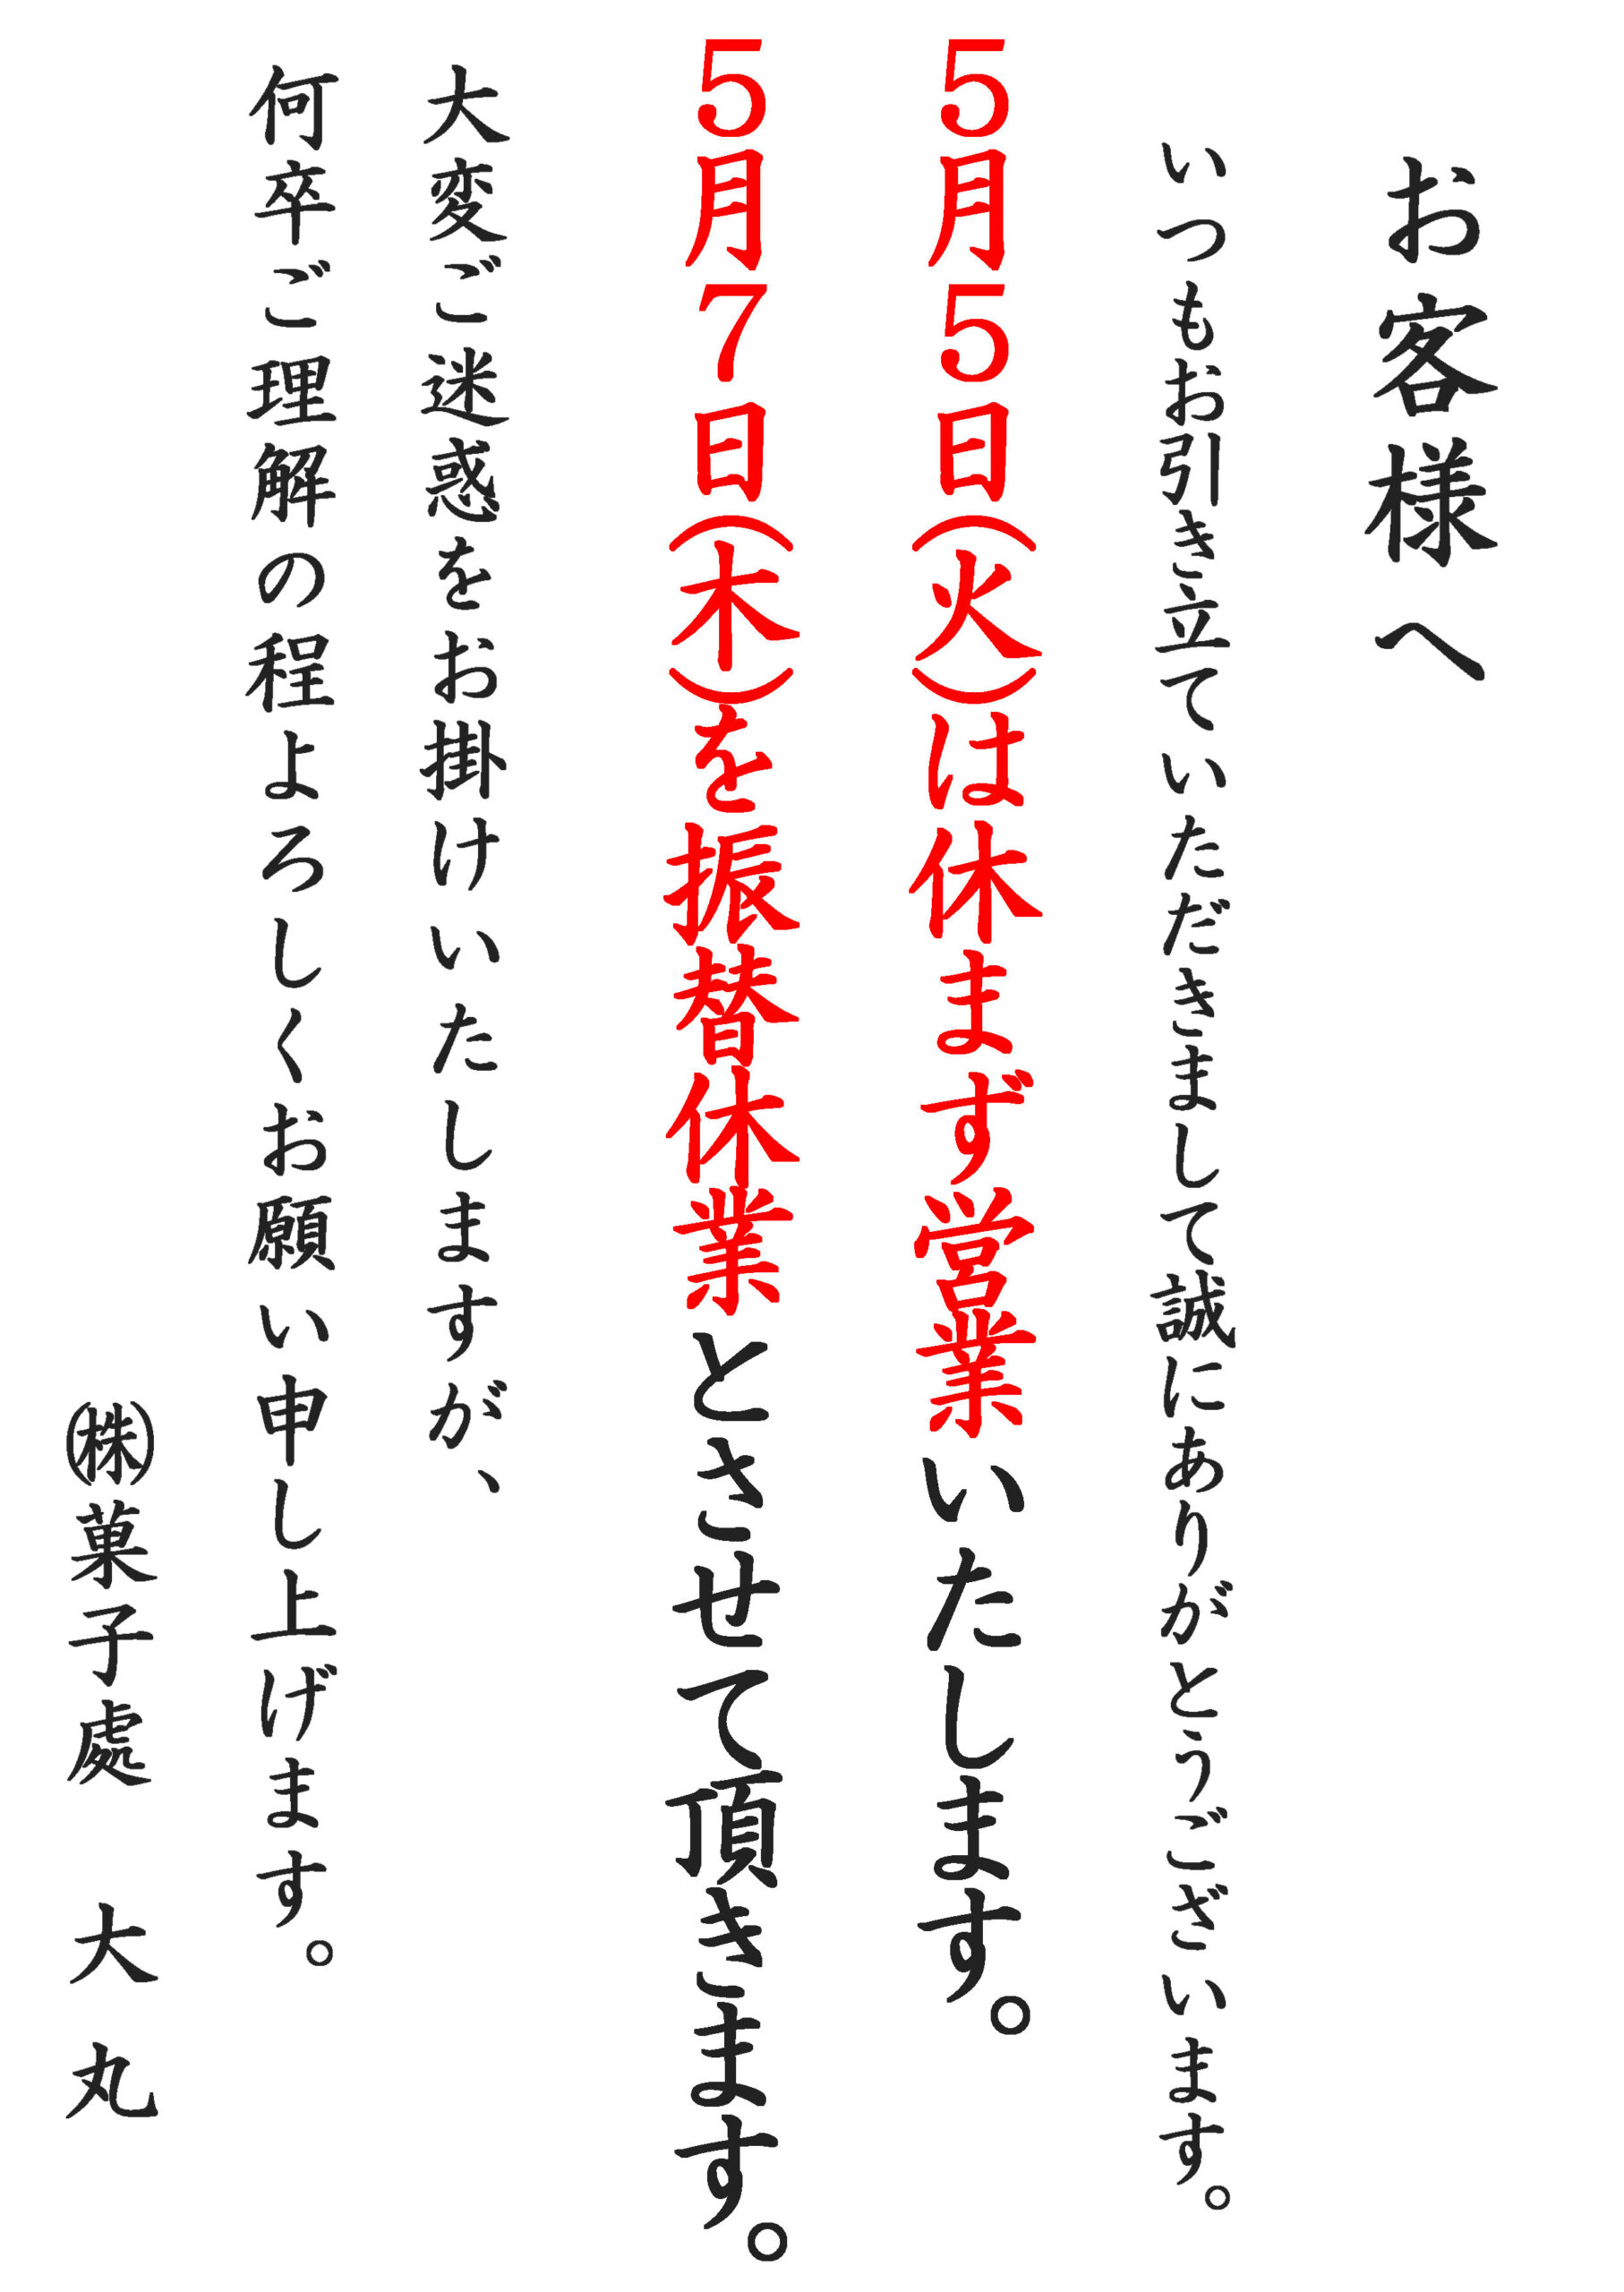 お客様へ
いつもお引き立ていただきまして誠にありがとうございます。
５月５日（火）は休まず営業いたします。
５月７日（木）を振替休業とさせて頂きます。
大変ご迷惑をお掛けいたしますが、
何卒ご理解の程よろしくお願い申し上げます。
㈱菓子處　大丸